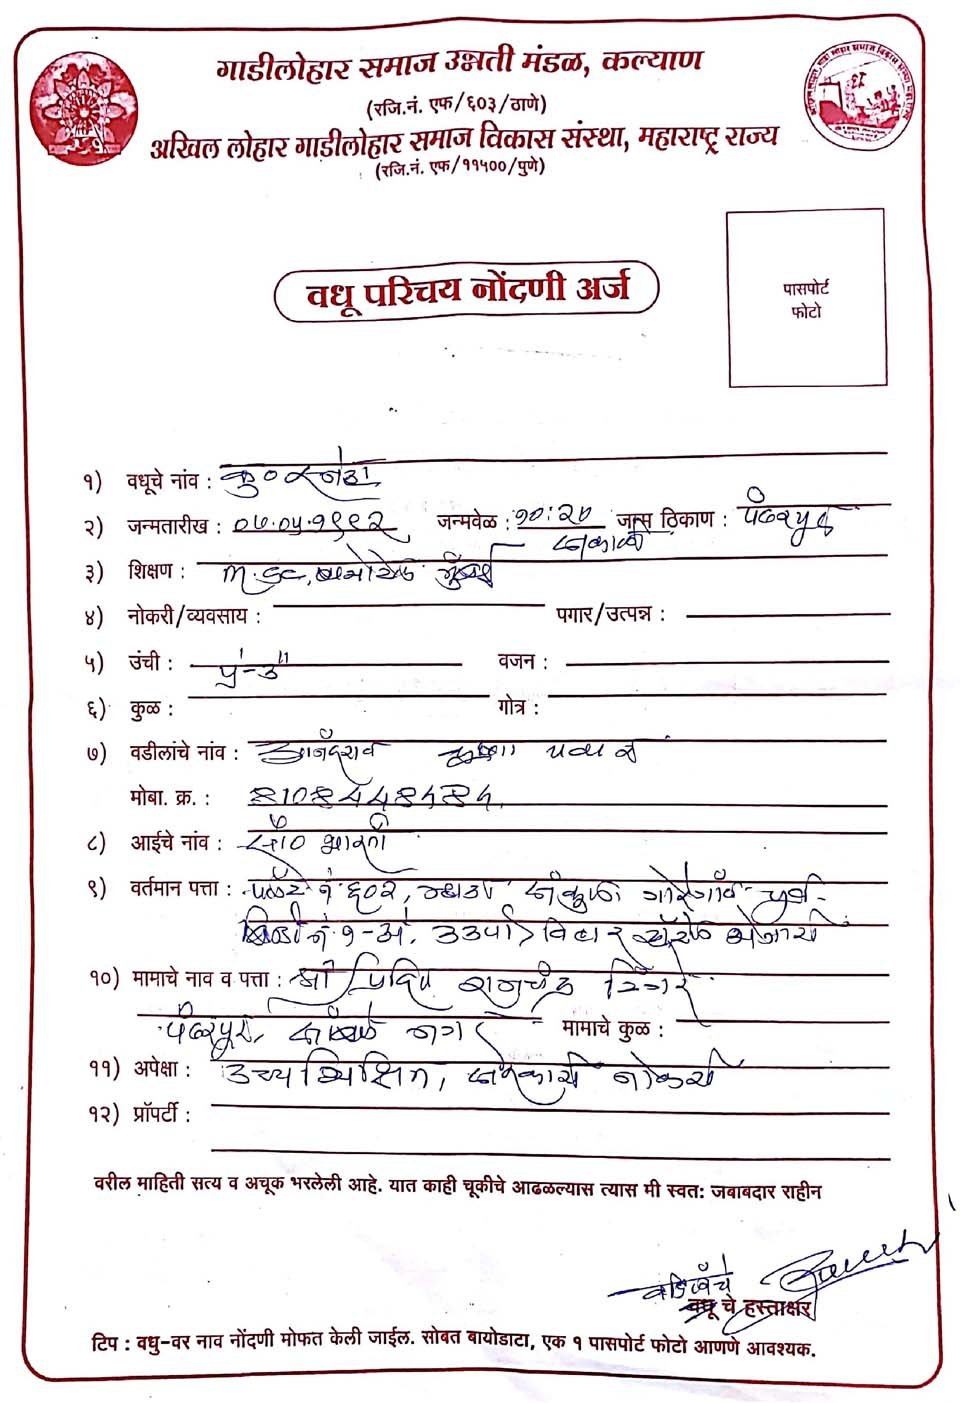 गाडीलोहार समाज उन्नती मंडळ, कल्याण
(रजि.नं. एफ/६०३/ठाणे)
अखिल लोहार गाडीलोहार समाज विकास संस्था, महाराष्ट्र राज्य
(रजि.नं. एफ/११५००/पुणे)
पासपोर्ट
फोटो
वधू परिचय नोंदणी अर्ज
१) वधूचे नांव : कु०
२) जन्मतारीख : ०७.०५.१९९२ जन्मवेळ : १०:२० जन्म ठिकाण : पंढरपुर
सकाळी
३) शिक्षण : M.Sc, मुंबई
४) नोकरी/व्यवसाय : पगार/उत्पन्न :
५) उंची : ५'-३" वजन :
६) कुळ : गोत्र :
७) वडीलांचे नांव : आनंदराव कृष्णा पवार
मोबा. क्र. :
८) आईचे नांव : सौ० भारती
९) वर्तमान पत्ता : नं ६०२, संकुळ गोरेगाँव पुर्व-
नं १-अे,
१०) मामाचे नाव व पत्ता : श्री प्रदिप
पंढरपुर, नगर मामाचे कुळ :
११) अपेक्षा : उच्च शिक्षित, सरकारी नोकरी
१२) प्रॉपर्टी :
वरील माहिती सत्य व अचूक भरलेली आहे. यात काही चूकीचे आढळल्यास त्यास मी स्वत: जबाबदार राहीन
वडिलांचे
वधू चे हस्ताक्षर
टिप : वधु-वर नाव नोंदणी मोफत केली जाईल. सोबत बायोडाटा, एक १ पासपोर्ट फोटो आणणे आवश्यक.